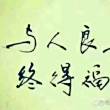 与人良
终得福